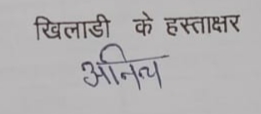 खिलाडी के हस्ताक्षर
अनित्य